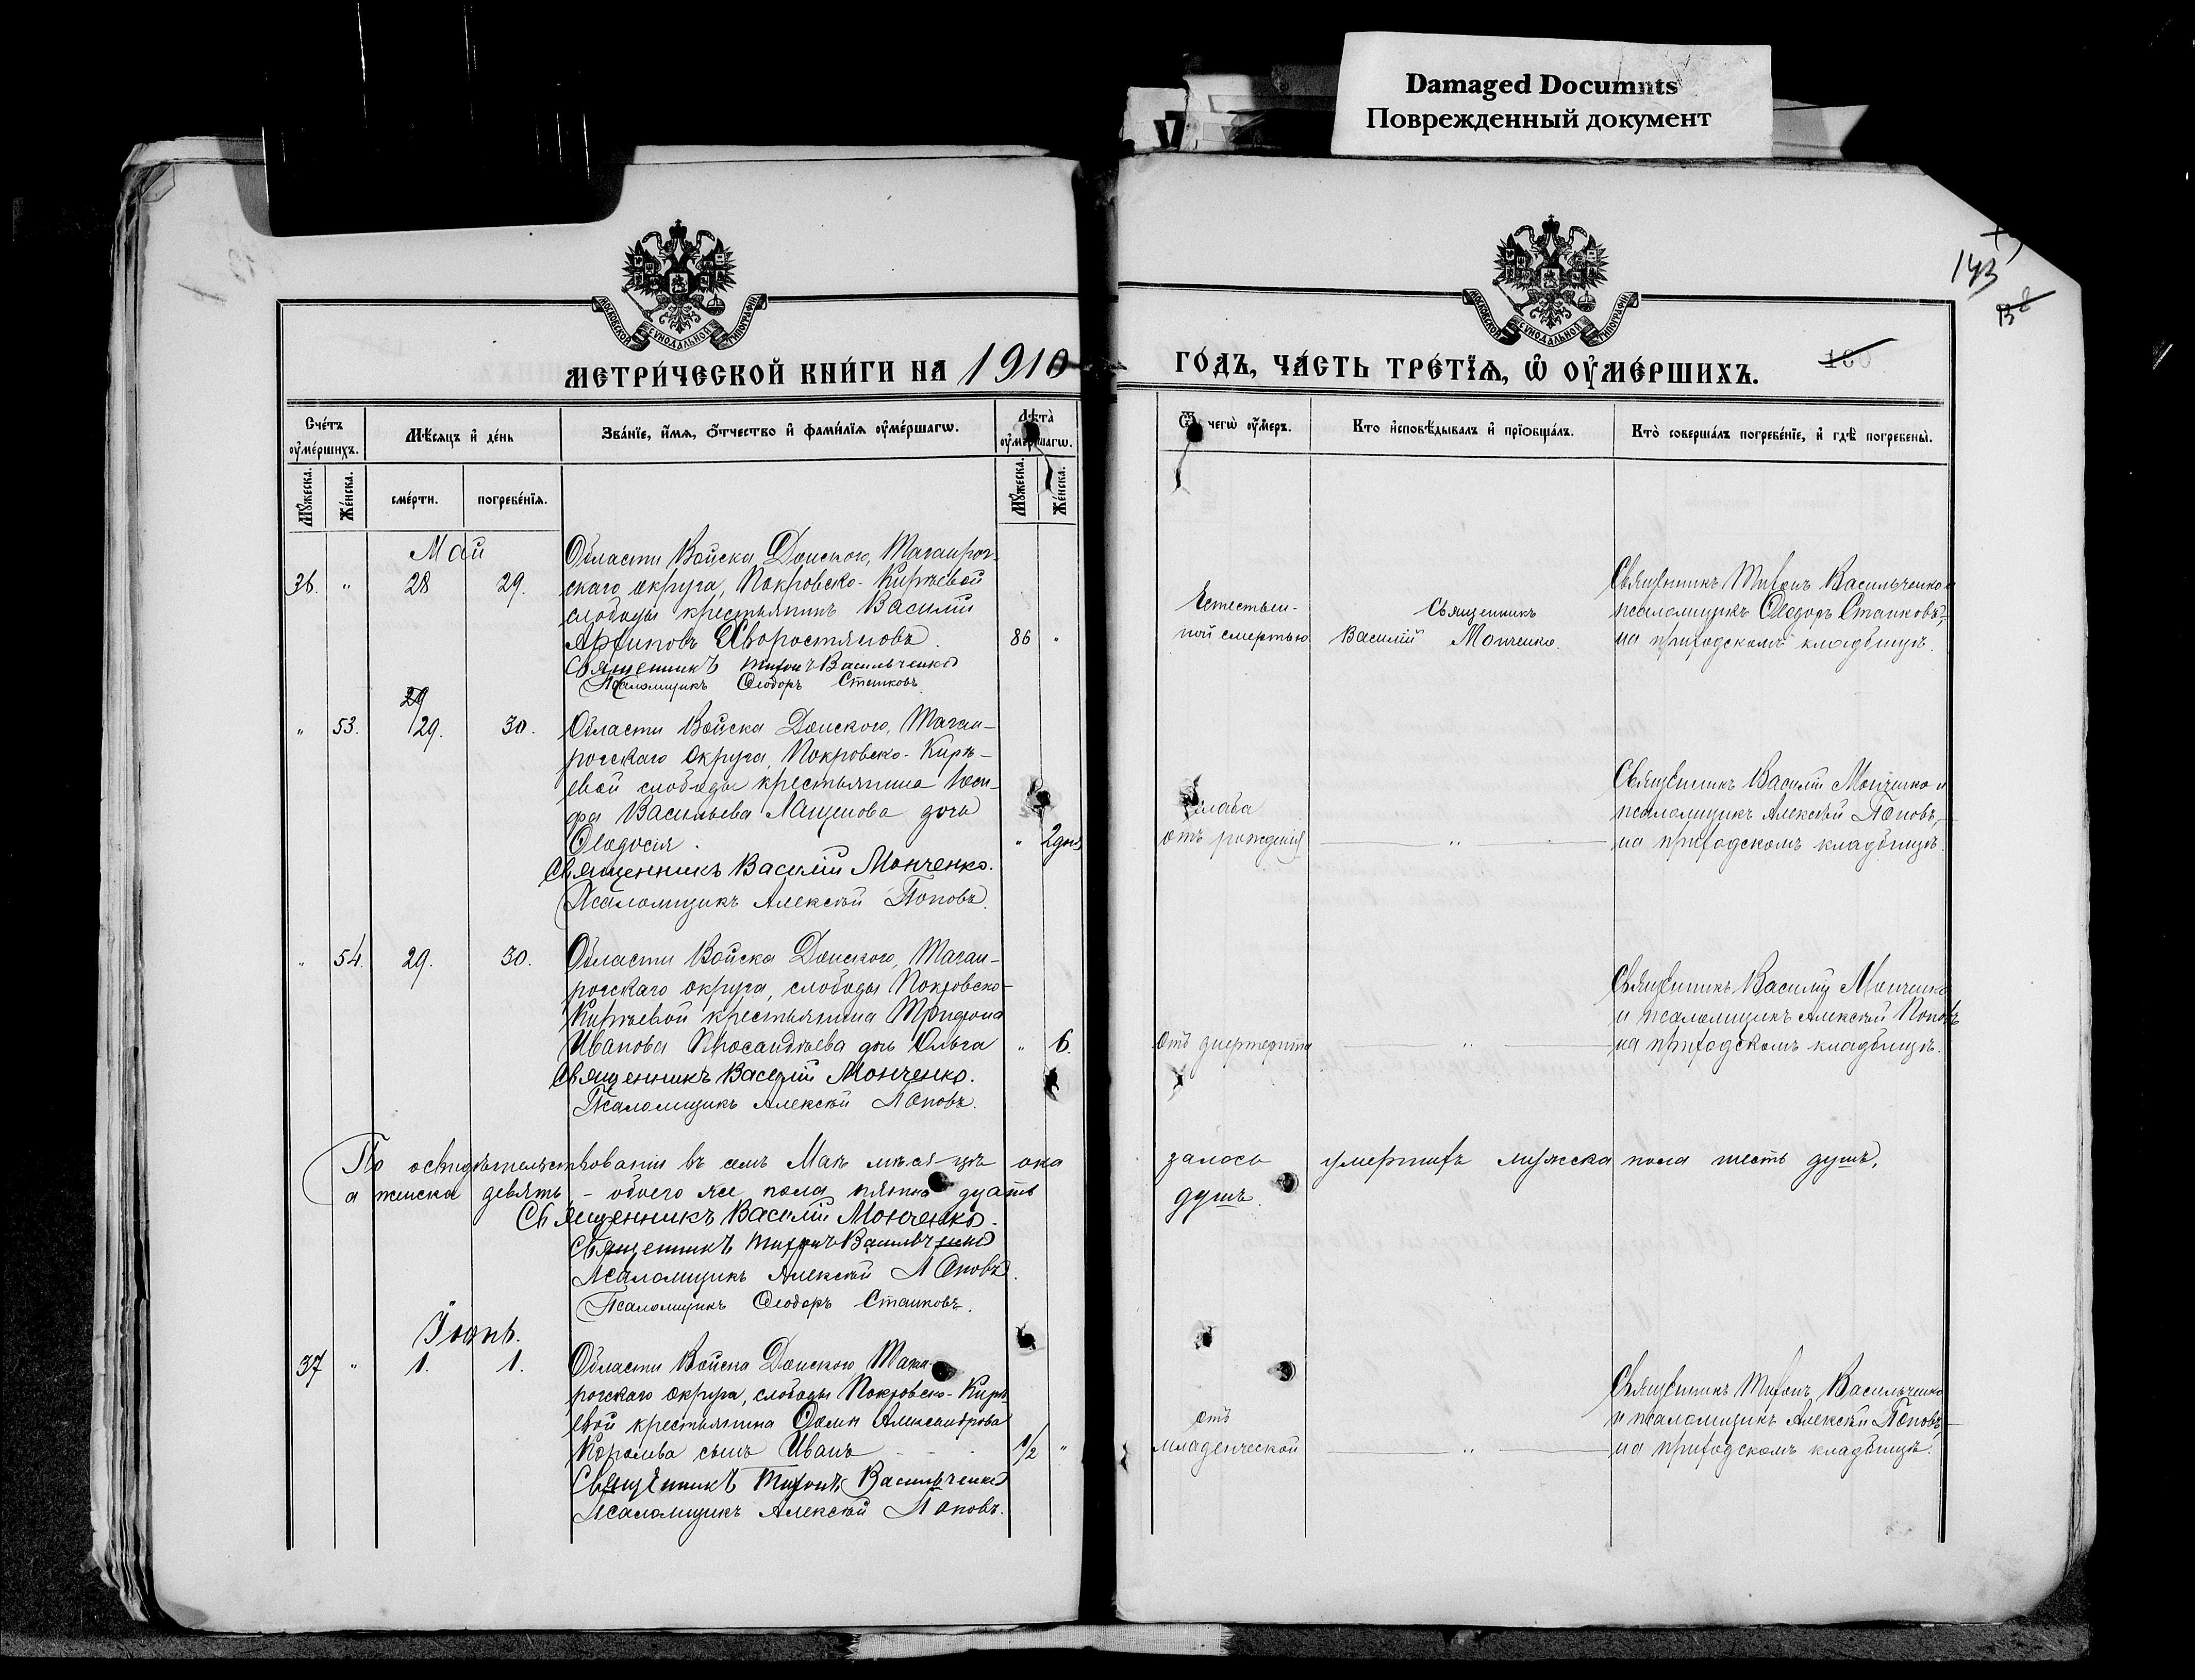 Damaged Documnts
Поврежденный документ
МОСКОВСКОЙ СѴНОДАЛЬНОЙ ТИПОГРАФІИ
МОСКОВСКОЙ СѴНОДАЛЬНОЙ ТИПОГРАФІИ
143
138
МЕТРИ́ЧЕСКОЙ КНИ́ГИ НА 1910
ГО́ДЪ, ЧА́СТЬ ТРЕ́ТЇѦ, Ѽ ОУ҆МЕ́РШИХЪ.
Сче́тъ оу҆ме́ршихъ.
Мѣ́сяцъ и҆ де́нь
Зва́нїе, и҆́мя, ѻ҆́тчество и҆ фами́лїя оу҆ме́ршагѡ.
Лѣта̀ оу҆ме́ршагѡ.
Ѿ чегѡ̀ оу҆́меръ.
Кто̀ и҆сповѣ́дывалъ и҆ прїѻбща́лъ.
Кто̀ соверша́лъ погребе́нїе, и҆ гдѣ̀ погребены̀.
Мꙋ́жеска.
Же́нска.
сме́рти.
погребе́нїя.
Мꙋ́жеска.
Же́нска.
Май
36. " 28 29.
Области Войска Донского, Таганрог-
скаго округа, Покровско-Киреевой
слободы крестьянинъ Василій
Архиповъ Хворостяновъ. 86 "
Священникъ Тихонъ Васильченко
Псаломщикъ Ѳеодоръ Станковъ.
Естествен-
ной смертью
Священникъ
Василій Монченко.
Священникъ Тихонъ Васильченко и
псаломщикъ Ѳеодоръ Станковъ,
на приходскомъ кладбищѣ.
29
" 53. 29. 30.
Области Войска Донского, Таган-
рогскаго округа, Покровско-Кире-
евой слободы крестьянина Іоси-
фа Васильева Лащенова дочь
Ѳеодосія. " 2 дня
Священникъ Василій Монченко.
Псаломщикъ Алексѣй Поповъ.
слаба
отъ рожденія
"
Священникъ Василій Монченко и
псаломщикъ Алексѣй Поповъ,
на приходскомъ кладбищѣ.
" 54. 29. 30.
Области Войска Донского, Таган-
рогскаго округа, слободы Покровско-
Киреевой крестьянина Трифона
Иванова дочь Ольга " 6.
Священникъ Василій Монченко.
Псаломщикъ Алексѣй Поповъ.
отъ дифтерита
"
Священникъ Василій Монченко
и псаломщикъ Алексѣй Поповъ
на приходскомъ кладбищѣ.
По освидѣтельствованіи въ семъ Маѣ мѣсяцѣ ока
залось умершихъ мужска пола шесть душъ,
а женска девять, - обоего же пола пятнадцать
душъ.
Священникъ Василій Монченко.
Священникъ Тихонъ Васильченко
Псаломщикъ Алексѣй Поповъ.
Псаломщикъ Ѳеодоръ Станковъ.
Іюнь.
37 " 1. 1.
Области Войска Донского Таган-
рогскаго округа, слободы Покровско-Кире-
евой крестьянина Ѳомы Александрова
Королева сынъ Иванъ 1/2 "
Священникъ Тихонъ Васильченко
Псаломщикъ Алексѣй Поповъ.
отъ
младенческой
"
Священникъ Тихонъ Васильченко
и псаломщикъ Алексѣй Поповъ,
на приходскомъ кладбищѣ.